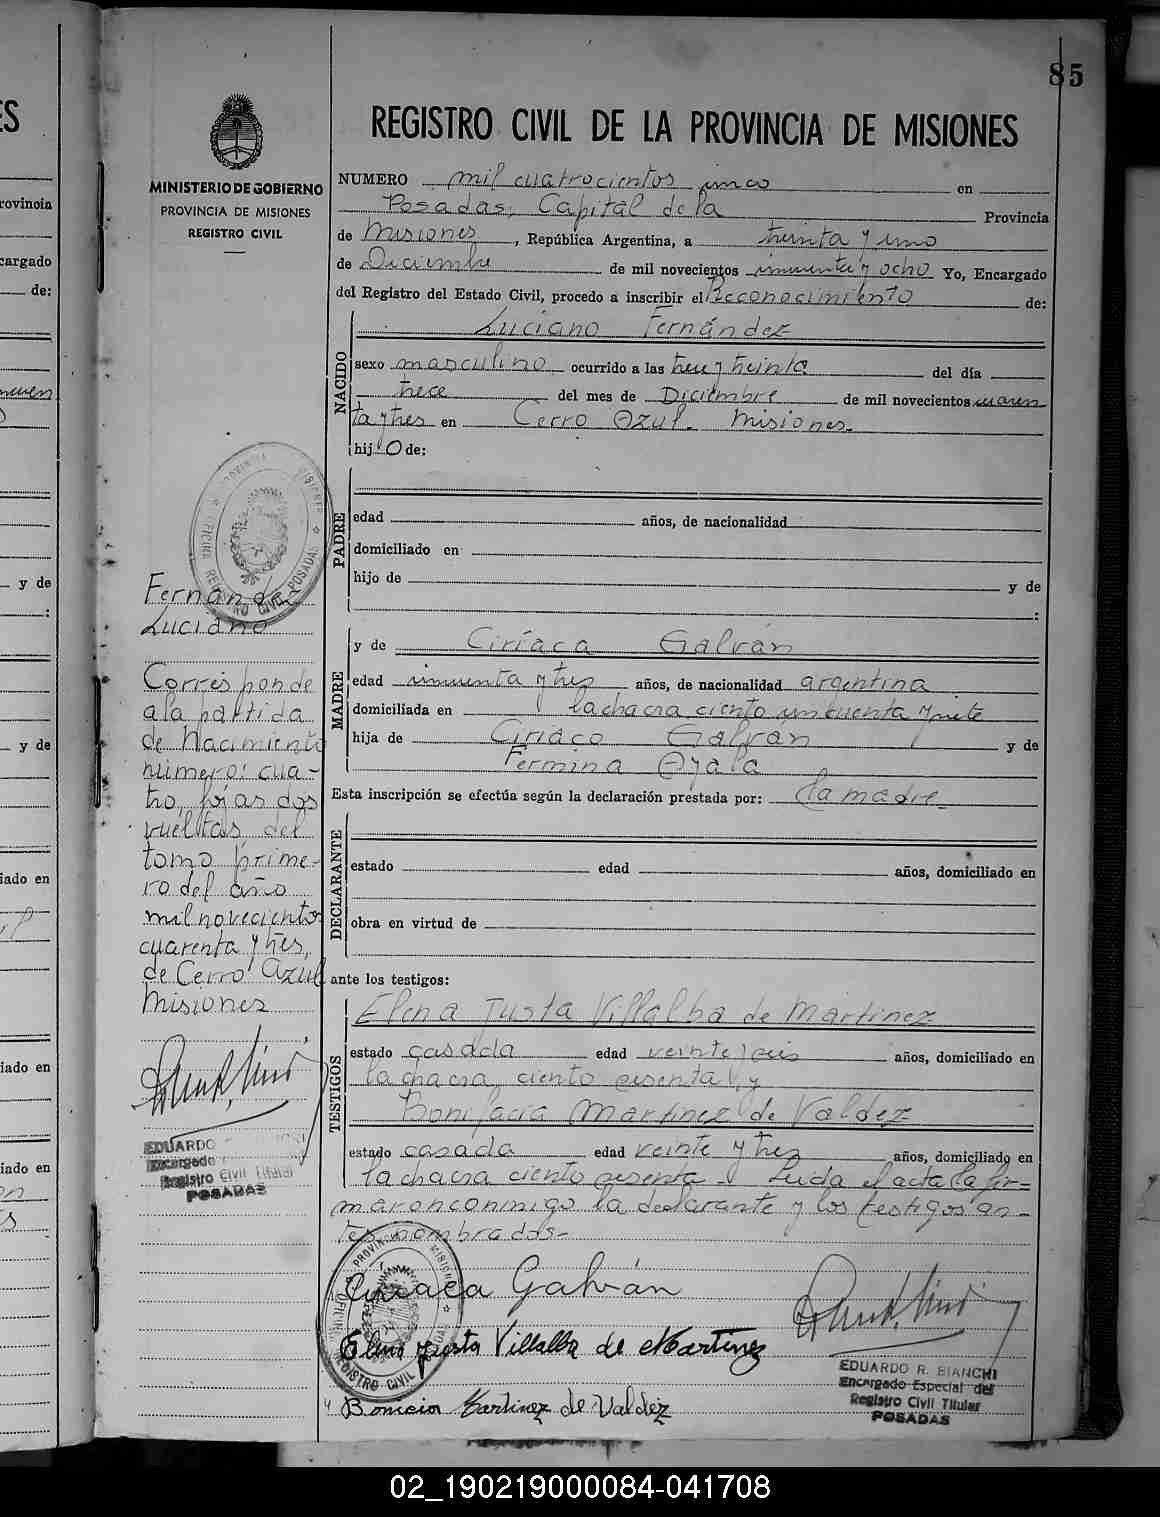 85
REGISTRO CIVIL DE LA PROVINCIA DE MISIONES
MINISTERIO DE GOBIERNO
PROVINCIA DE MISIONES
REGISTRO CIVIL
NUMERO mil cuatrocientos cinco en
Posadas, Capital de la Provincia
de Misiones, República Argentina, a treinta y uno
de Diciembre de mil novecientos cincuenta y ocho Yo, Encargado
del Registro del Estado Civil, procedo a inscribir el Reconocimiento de:
NACIDO
Luciano Fernández
sexo masculino ocurrido a las trece y treinta del día
trece del mes de Diciembre de mil novecientos cuaren
ta y tres en Cerro Azul - Misiones.
hijo de:
PADRE
edad años, de nacionalidad
domiciliado en
hijo de y de
:
MADRE
y de Ciríaca Galván
edad cincuenta y tres años, de nacionalidad argentina
domiciliada en la chacra ciento cincuenta y siete
hija de Ciriaco Galván y de
Fermina Ayala
Esta inscripción se efectúa según la declaración prestada por: la madre.
DECLARANTE
estado edad años, domiciliado en
obra en virtud de
ante los testigos:
TESTIGOS
Elena Justa Villalba de Martinez
estado casada edad veinte y seis años, domiciliado en
la chacra ciento sesenta y
Bonifacia Martinez de Valdez
estado casada edad veinte y tres años, domiciliado en
la chacra ciento sesenta - Leida el acta la fir=
maron conmigo la declarante y los testigos an-
tes nombrados-
Ciriaca Galván
Elena Justa Villalba de Martinez
Martinez de Valdez
EDUARDO R. BIANCHI
Encargado Especial del
Registro Civil Titular
POSADAS
Fernández
Luciano
Corresponde
a la partida
de Nacimiento
número: cua-
tro, fojas dos
vueltas del
tomo prime-
ro del año
mil novecientos
cuarenta y tres,
de Cerro Azul
Misiones
EDUARDO
Encargado
Registro Civil Titular
POSADAS
02_190219000084-041708